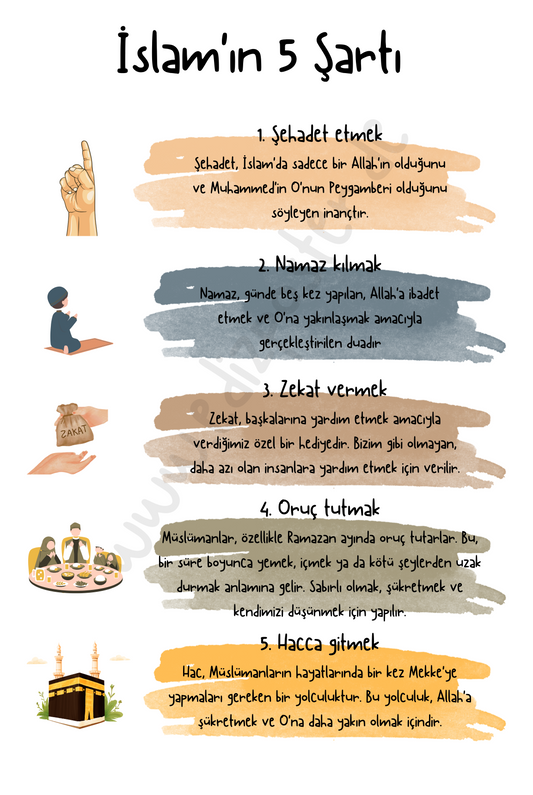 İslam'ın 5 Şartı
1. Şehadet etmek
Şehadet, İslam'da sadece bir Allah'ın olduğunu
ve Muhammed'in O'nun Peygamberi olduğunu
söyleyen inançtır.
2. Namaz kılmak
Namaz, günde beş kez yapılan, Allah'a ibadet
etmek ve O'na yakınlaşmak amacıyla
gerçekleştirilen duadır
3. Zekat vermek
ZAKAT
Zekat, başkalarına yardım etmek amacıyla
verdiğimiz özel bir hediyedir. Bizim gibi olmayan,
daha azı olan insanlara yardım etmek için verilir.
4. Oruç tutmak
Müslümanlar, özellikle Ramazan ayında oruç tutarlar. Bu,
bir süre boyunca yemek, içmek ya da kötü şeylerden uzak
durmak anlamına gelir. Sabırlı olmak, şükretmek ve
kendimizi düşünmek için yapılır.
5. Hacca gitmek
Hac, Müslümanların hayatlarında bir kez Mekke'ye
yapmaları gereken bir yolculuktur. Bu yolculuk, Allah'a
şükretmek ve O'na daha yakın olmak içindir.